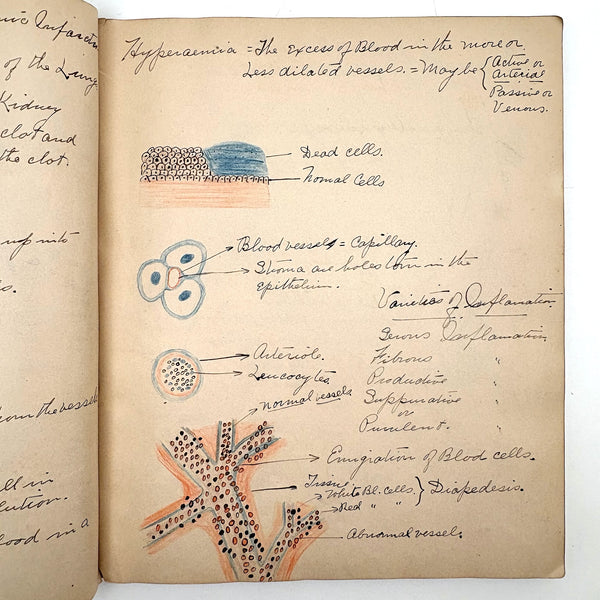 of the Lung
Kidney
clot and
the clot.
up into
s.
from the vessels
ll in
lution.
lood in a
Hyperaemia = The Excess of Blood in the more or
Less dilated vessels. = May be { Active or
Arterial
Passive or
Venous.
Dead cells.
Normal Cells
Blood vessels = Capillary.
Stroma are holes torn in the
epithelium.
Varieties of Inflamation
Serous Inflamation
Fibrous "
Productive "
Suppurative "
or
Purulent.
Arteriole.
Leucocytes.
normal vessels
Emigration of Blood cells.
Tissue
White Bl. cells. } Diapedesis.
Red " "
Abnormal vessel.